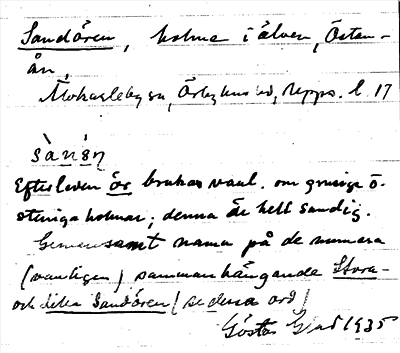 Sandören, holme i älven, Östen-
ån,
Älvkarleby sn, Örbyhus hd, Upps. l. 17
sàn'ö̀n
Efterleden ör brukas vanl. om grusiga o.
steniga holmar; denna är helt sandig.
Gemensamt namn på de numera
(vanligen) sammanhängande Stora-
och Lilla Sandören (se dessa ord)
Gösta 1935